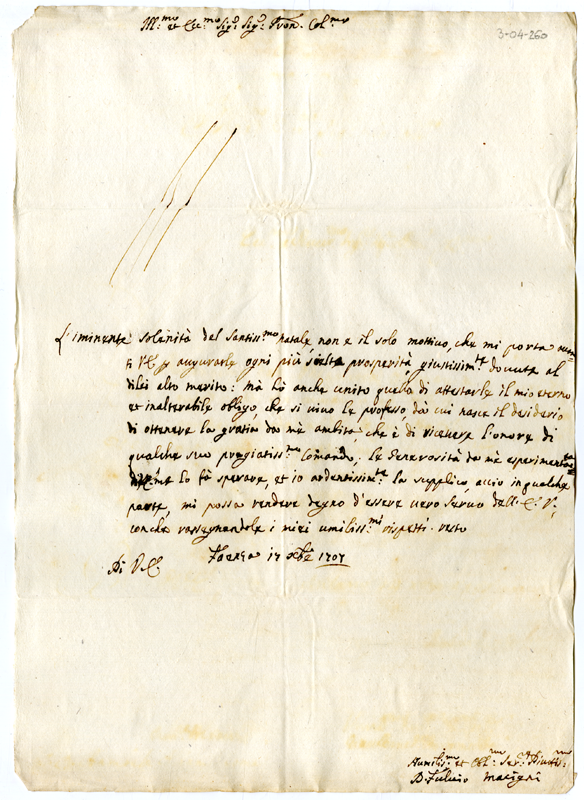 3-04-260
Ill.mo et Ecc.mo Sig.r Sig.r Pron. Col.mo
L'iminente solenità del Santiss.mo natale non è il solo mottivo, che mi porta
V.E. augurarle ogni più scielta prosperità giustissim.te dovuta al
dilei alto merito: mà hò anche unito quello di attestarle il mio eterno
et inalterabile obligo, che si vivo le professo dà cui nasce il desiderio
di ottenere la gratia dà mè ambita, che è di ricevere l'onore di
qualche suo pregiatiss.mo comando; la Generosità da mè esperimentata
lo fà sperare, et io ardentissim.te la supplico, acciò in qualche
parte, mi possa rendere degno d'essere vero servo dell' E. V.,
conche rassegnandole i miei umiliss.mi rispetti resto
Di V.E. Faenza 17 Xbre 1707
Humilis.mo et Obl.mo Ser.re Divotis.mo
D. Fulvio